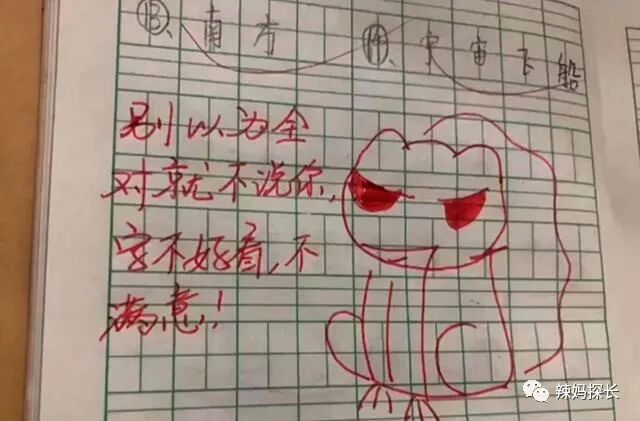 ⑬、南方 ⑭、宇宙飞船
别以为全
对就不说你,
字不好看,不
满意!
辣妈探长